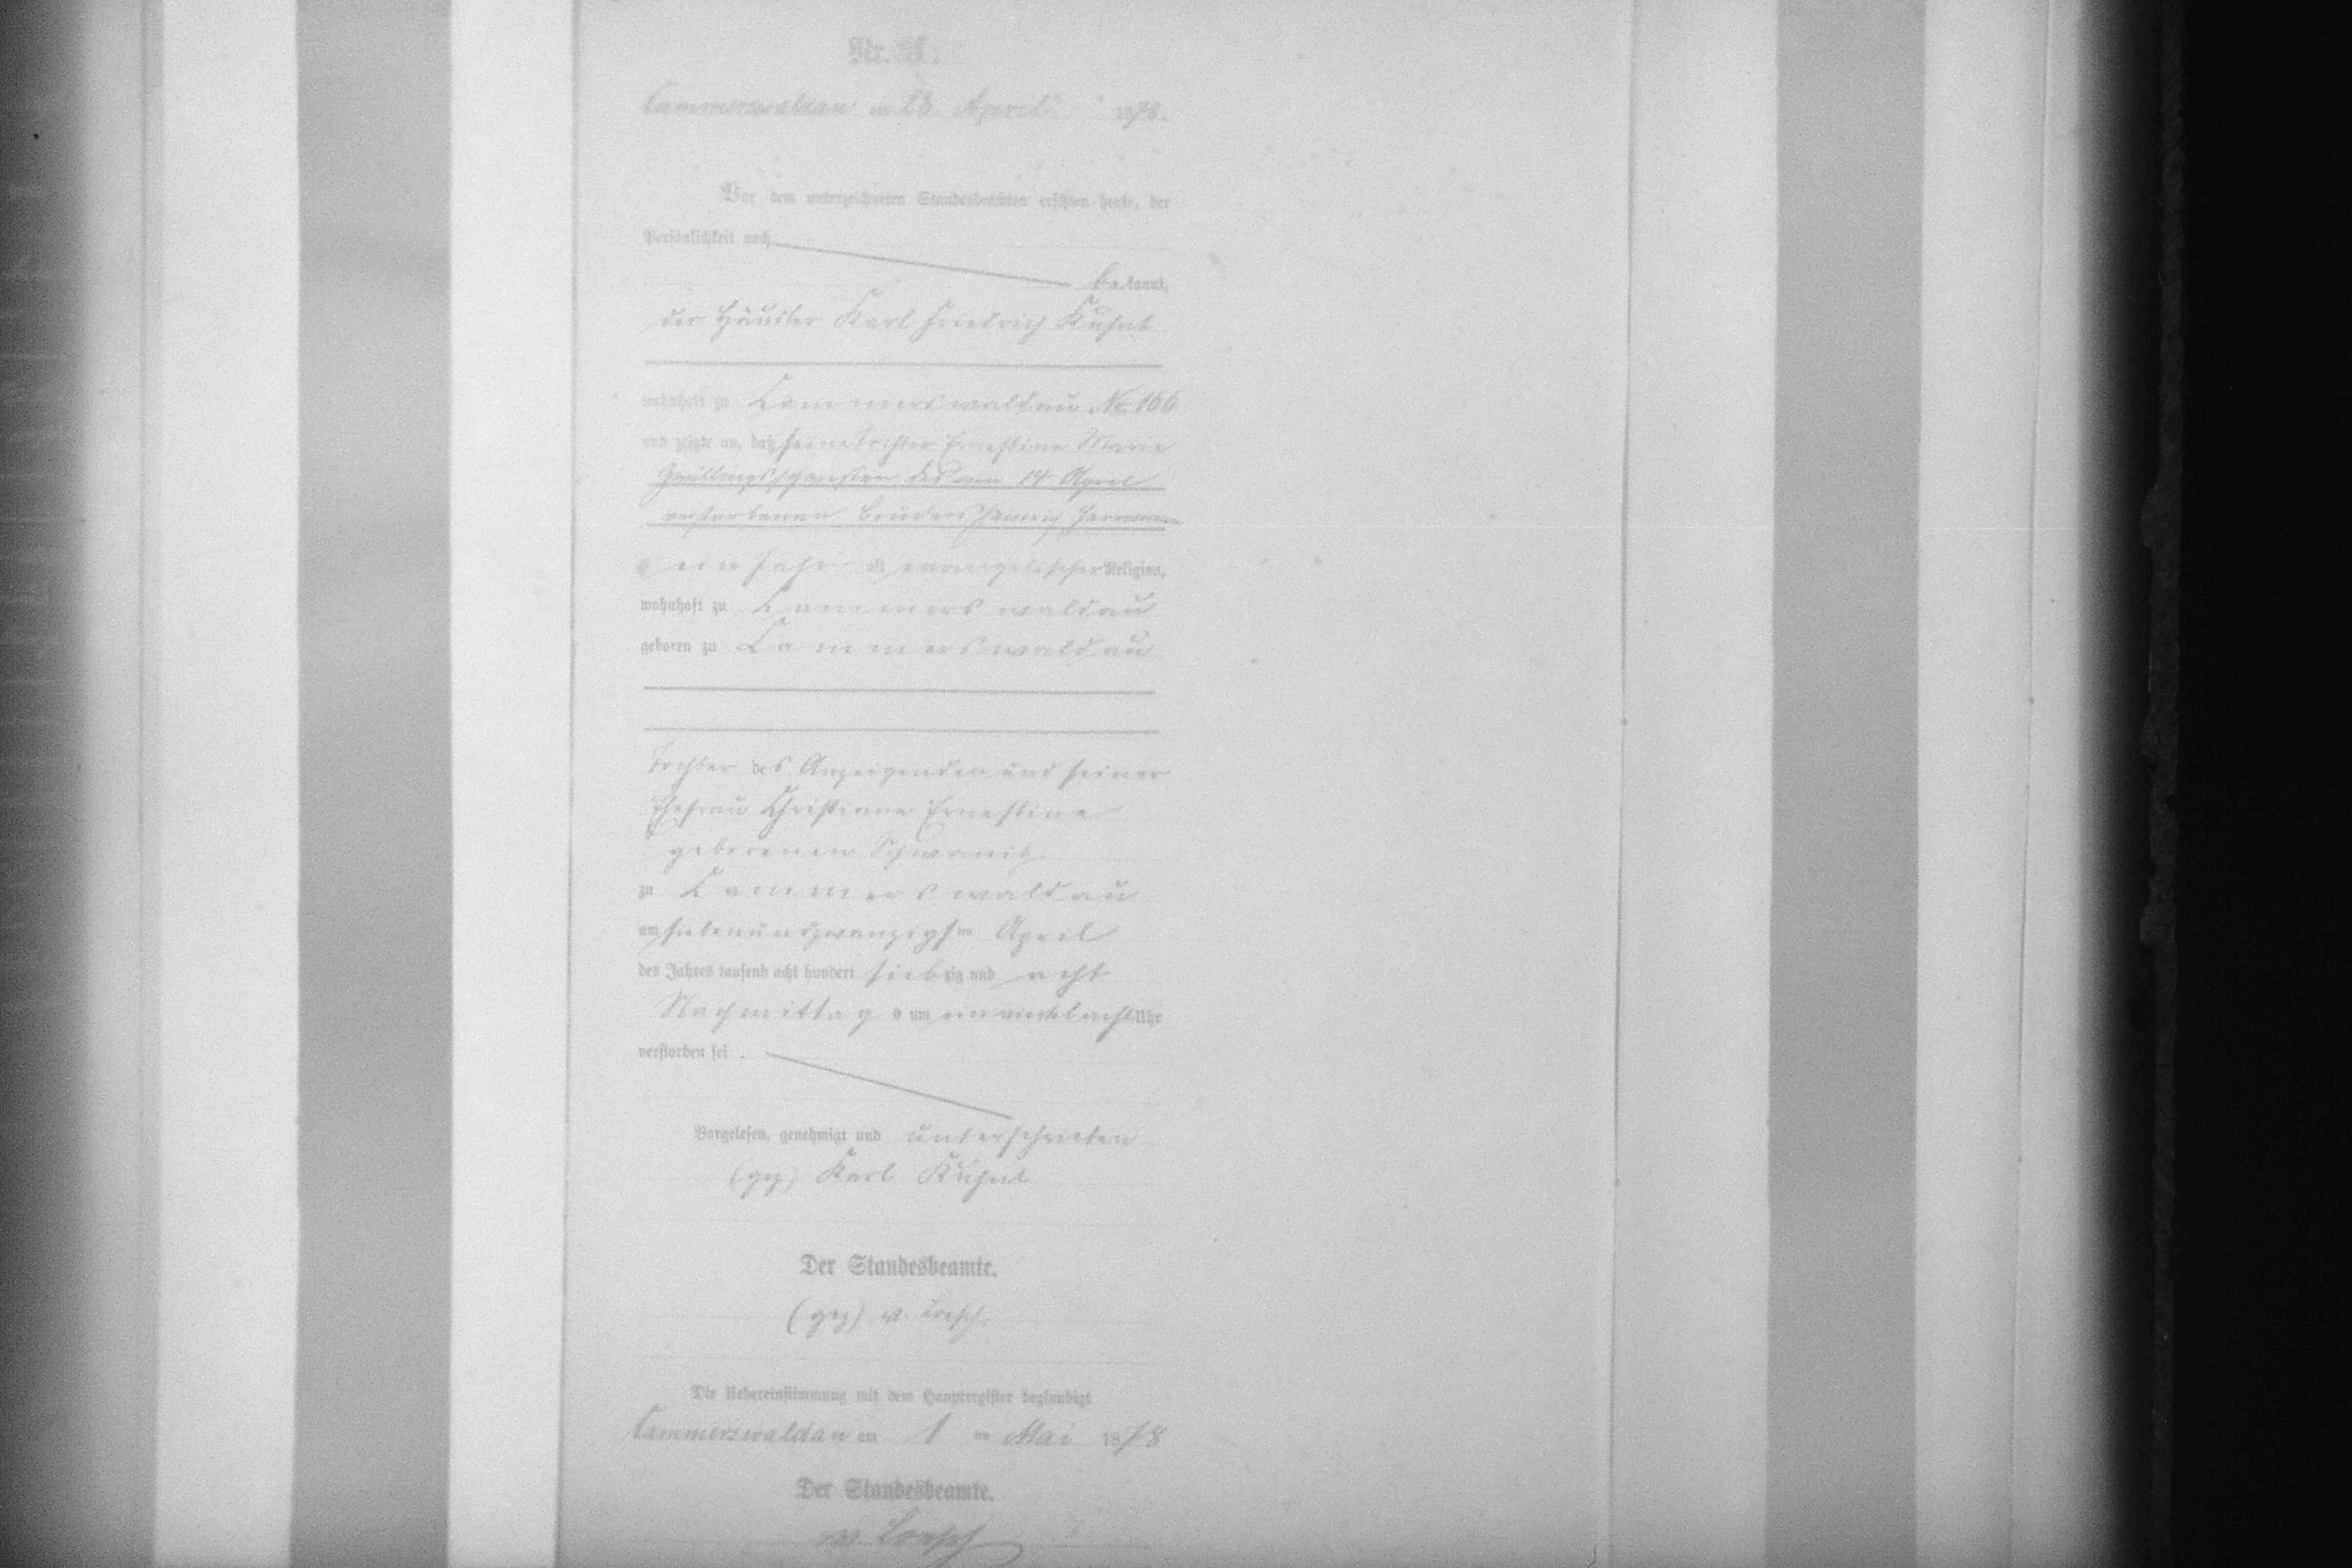 Nr.
Cammerswaldau am 28. April 1878.
Vor dem unterzeichneten Standesbeamten erschien heute, der
Persönlichkeit nach
be kannt,
der Häusler Karl Friedrich Kuhnt
wohnhaft zu Cammerswaldau No. 166
und zeigte an, daß seine Tochter Ernestine Marie
Zwillingsschwester des am 14 April
verstorbenen Bruders Heinrich Herrmann
ein Jahr alt evangelischer Religion,
wohnhaft zu Cammerswaldau
geboren zu Cammerswaldau
Tochter des Anzeigenden und seiner
Ehefrau Christiane Ernestine
geborenen
zu Cammerswaldau
am siebenundzwanzigsten April
des Jahres tausend acht hundert siebzig und acht
Nachmittag s um ein viertel acht Uhr
verstorben sei .
Vorgelesen, genehmigt und unterschrieben
(gez) Karl Kuhnt
Der Standesbeamte.
(gez) v. Loesch.
Die Uebereinstimmung mit dem Hauptregister beglaubigt
Cammerswaldau am 1 ten Mai 1878
Der Standesbeamte.
von Loesch